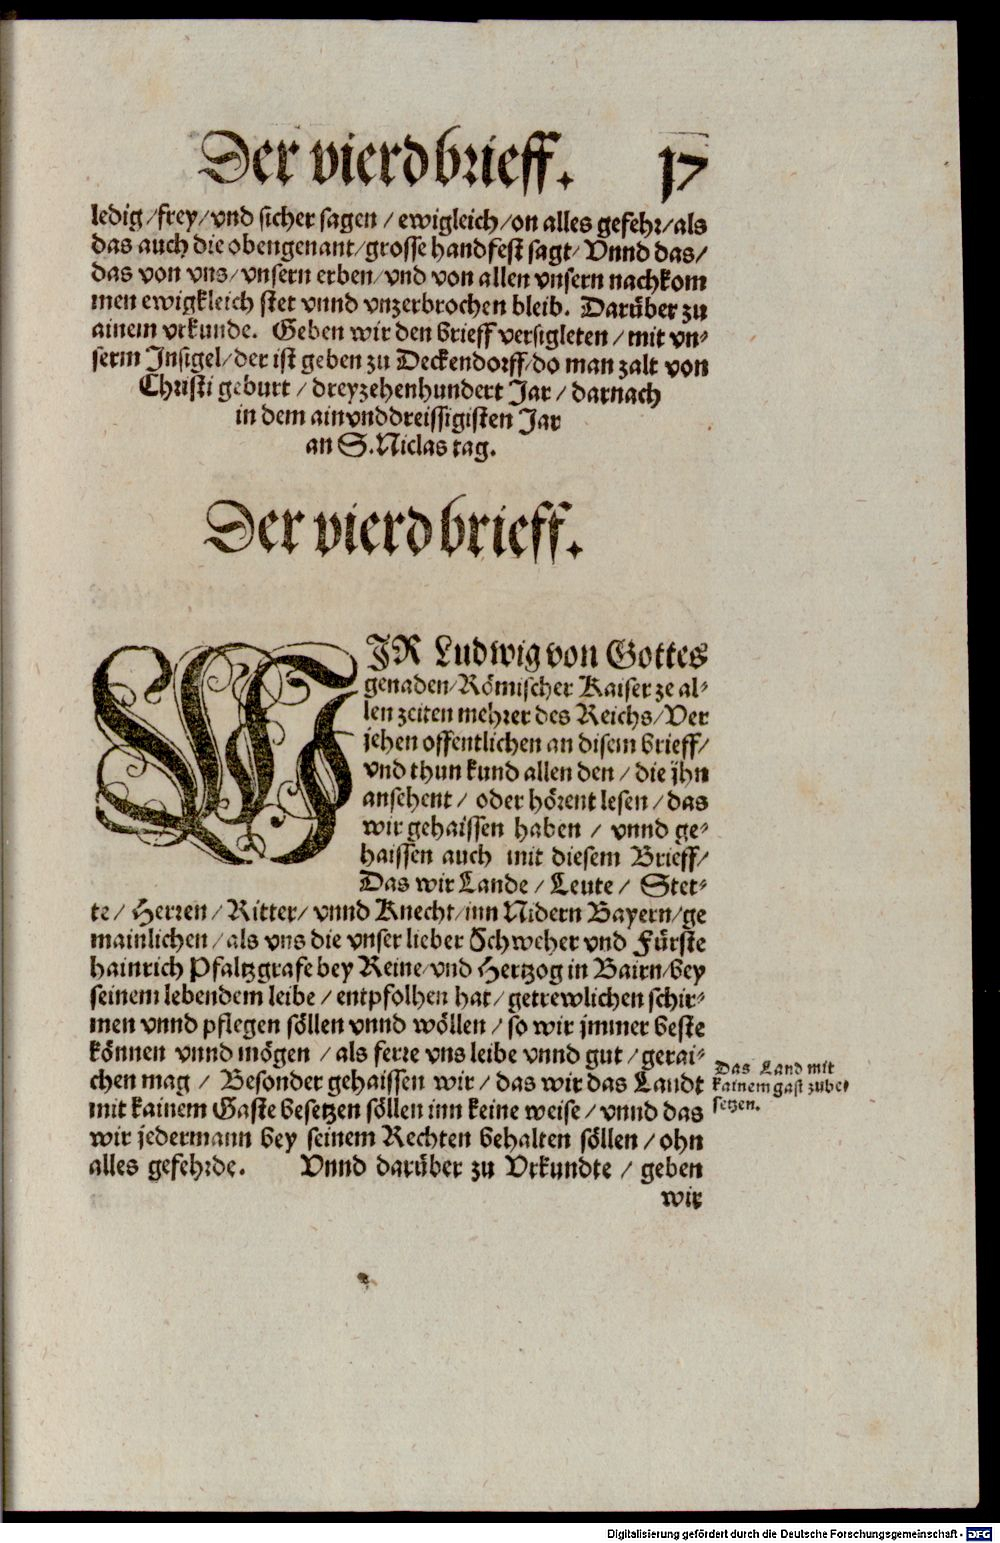 Der vierd brieff. 17
ledig / frey / vnd sicher sagen / ewigleich / on alles gefehr / als
das auch die obengenant / grosse handfest sagt / Vnnd das /
das von vns / vnsern erben / vnd von allen vnsern nachkom
men ewigkleich stet vnnd vnzerbrochen bleib. Darüber zu
ainem vrkunde. Geben wir den brieff versigleten / mit vn-
serm Insigel / der ist geben zu Deckendorff / do man zalt von
Christi geburt / dreyzehenhundert Jar / darnach
in dem ainvnddreissigisten Jar
an S. Niclas tag.
Der vierd brieff.
WIR Ludwig von Gottes
genaden / Römischer Kaiser ze al-
len zeiten mehrer des Reichs / Ver
jehen offentlichen an disem brieff /
vnd thun kund allen den / die jhn
ansehent / oder hörent lesen / das
wir gehaissen haben / vnnd ge-
haissen auch mit diesem Brieff /
Das wir Lande / Leute / Stet-
te / Herren / Ritter / vnnd Knecht / inn Nidern Bayern / ge
mainlichen / als vns die vnser lieber Schweher vnd Fürste
hainrich Pfaltzgrafe bey Reine / vnd Hertzog in Bairn / bey
seinem lebendem leibe / entpfolhen hat / getrewlichen schir-
men vnnd pflegen söllen vnnd wöllen / so wir jmmer beste
können vnnd mögen / als ferre vns leibe vnnd gut / gerai-
chen mag / Besonder gehaissen wir / das wir das Landt
mit kainem Gaste besetzen söllen inn keine weise / vnnd das
wir jedermann bey seinem Rechten behalten söllen / ohn
alles gefehrde. Vnnd darüber zu Vrkundte / geben
wir
Das Land mit
kainem gast zube-
setzen.
Digitalisierung gefördert durch die Deutsche Forschungsgemeinschaft - DFG